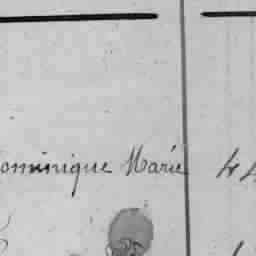 ominique Marie 44